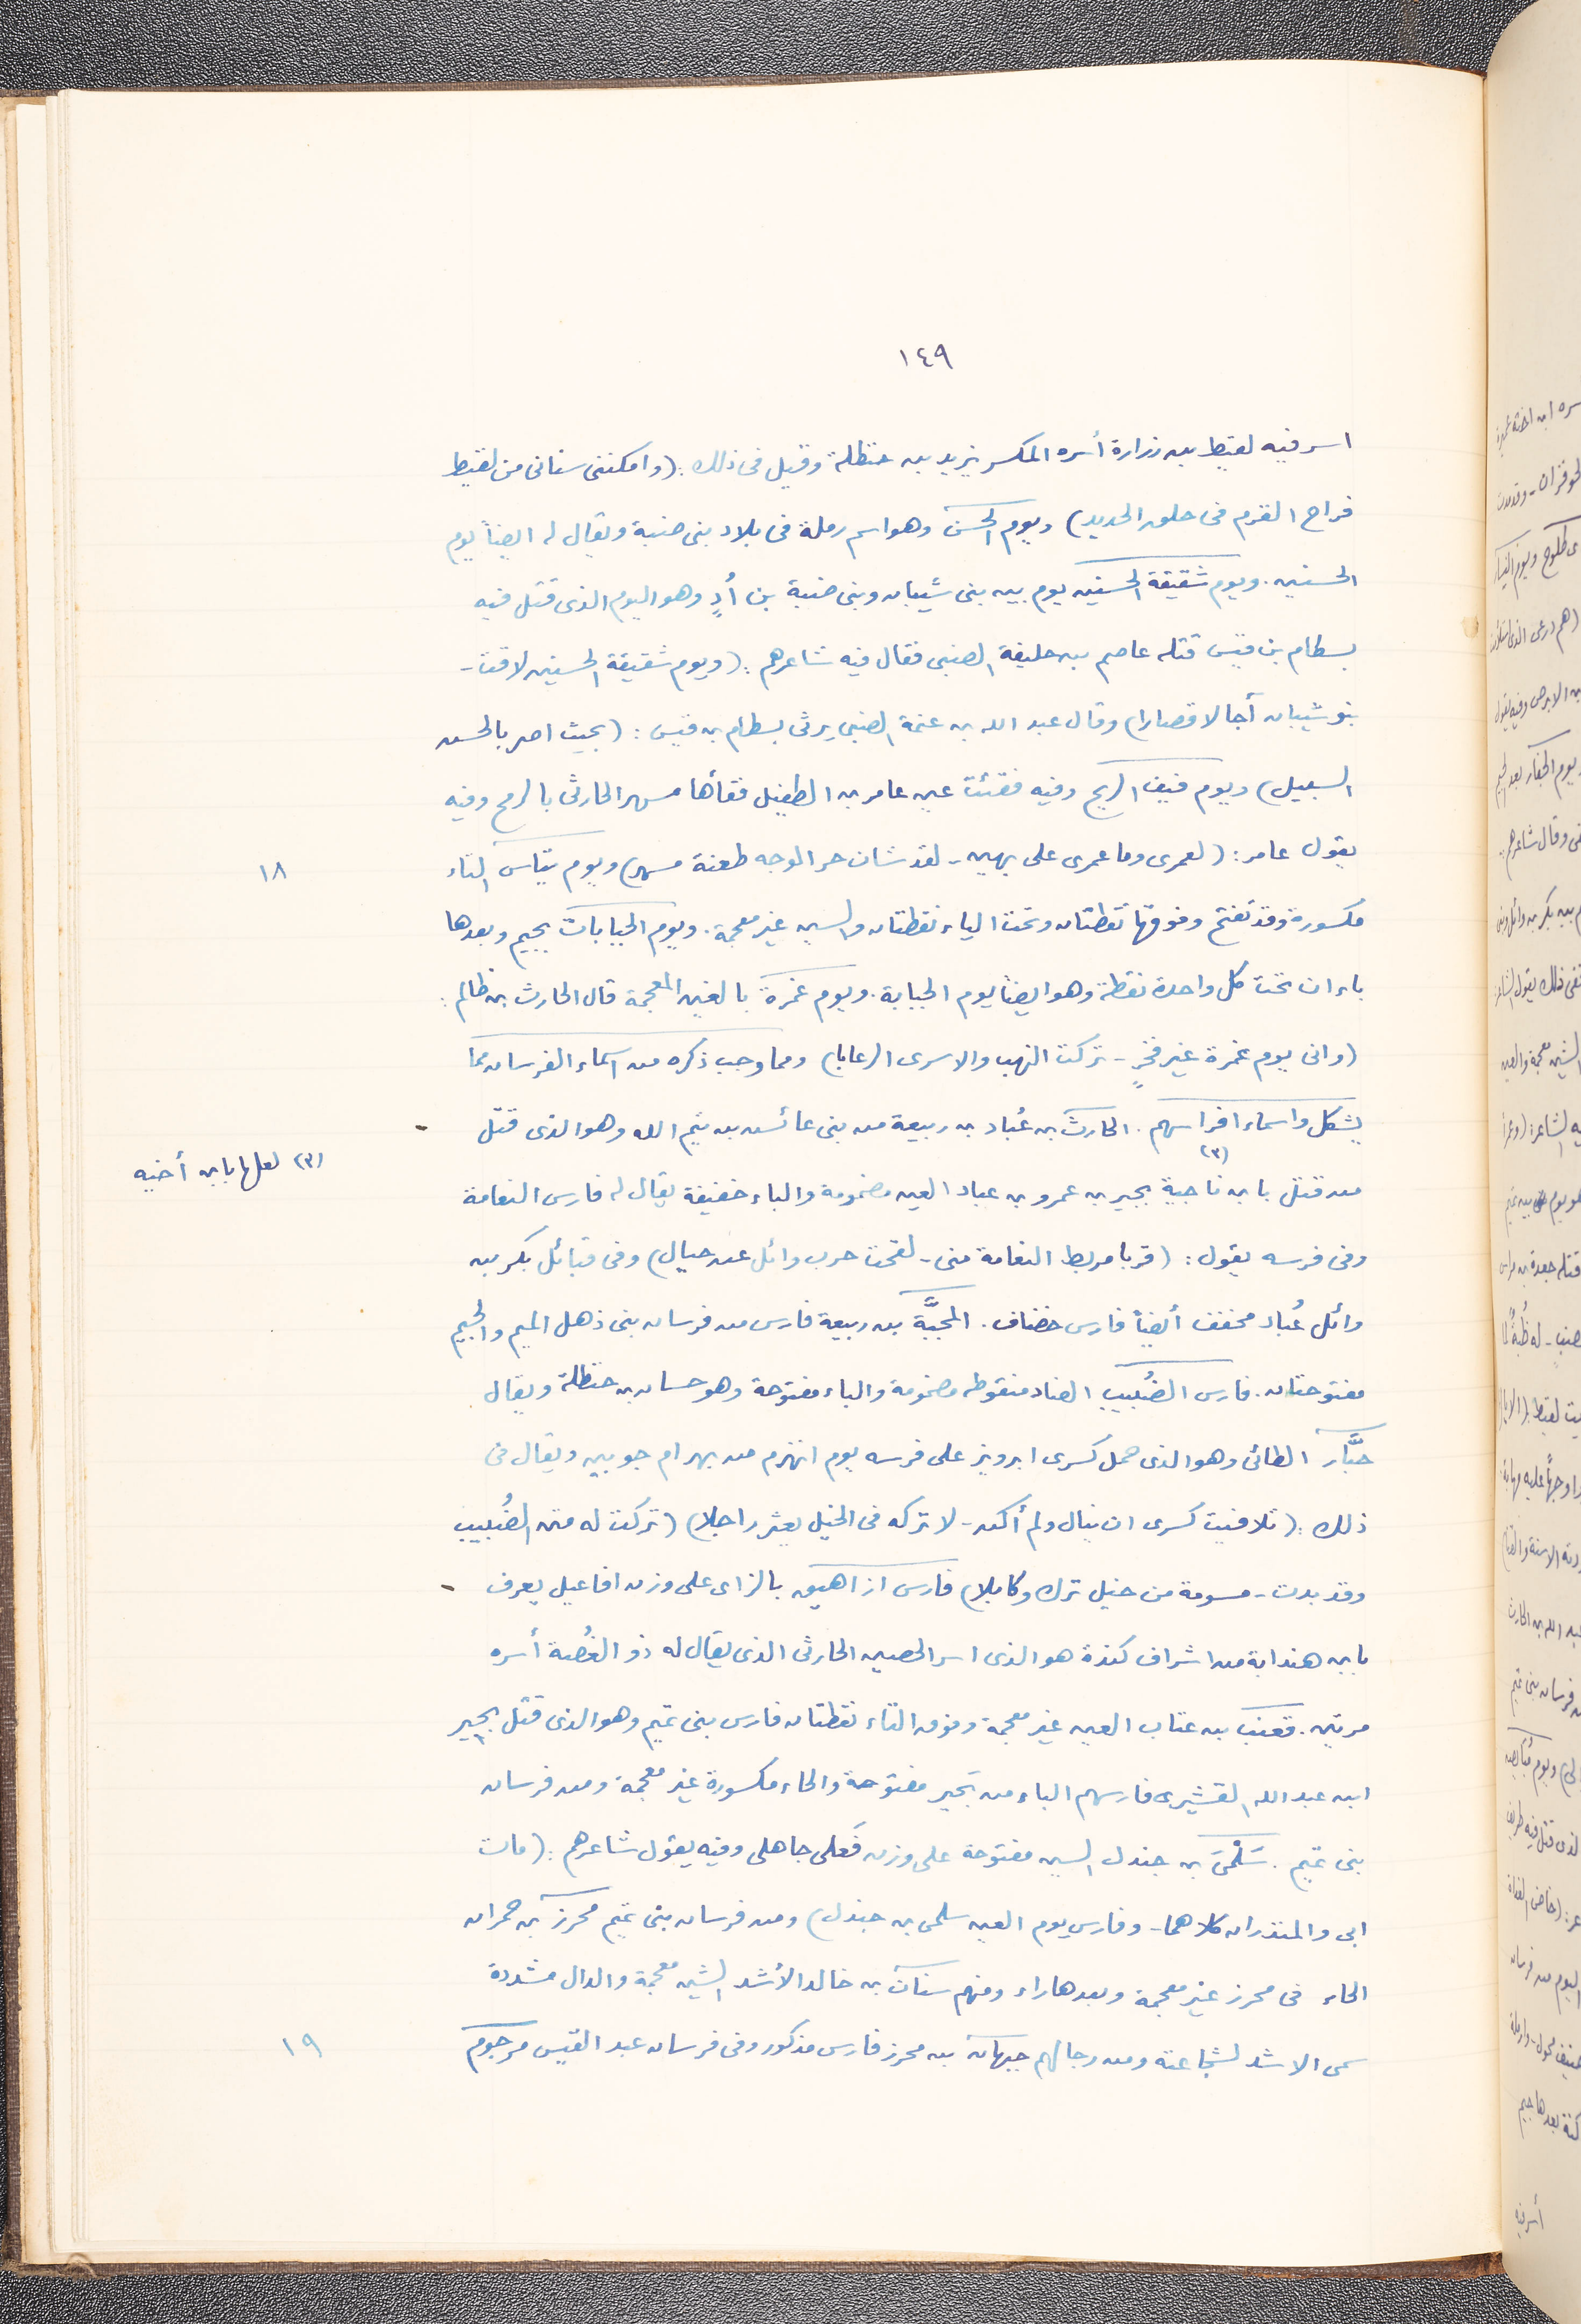 ١٤٩
اسر فيه لقيط بن زرارة أسره المكسر يزيد بن حنظلة وقيل فى ذلك: (وامكننى سنانى من لقيط
فراح القرم فى حلق الحديد) ويوم الحسن وهو اسم رملة فى بلاد بنى ضبة ويقال له ايضاً يوم
الحسنين. ويوم شقيقة الحسنين يوم بين بنى شيبان وبنى ضبة بن أُدٍ وهو اليوم الذى قتل فيه
بسطام بن قيس قتله عاصم بن خليفة الضبى فقال فيه شاعرهم: (ويوم شقيقة الحسنين لاقت -
بنو شيبان آجالا قصارا) وقال عبد الله بن عنمة الضبى يرثى بسطام بن قيس: (بحيث اضر بالحسن
السبيل) ويوم فيف الريح وفيه فقئت عين عامر بن الطفيل فقأها مسهر الحارثى بالرمح وفيه
يقول عامر: (لعمرى وما عمرى على بهين - لقد شان حر الوجه طعنة مسهر) ويوم تياس التاء
١٨
مكسورة وقد تفتح وفوقها نقطتان وتحت الياء نقطتان والسين غير معجمة. ويوم الجبابات بجيم وبعدها
باءان تحت كل واحدة نقطة وهو ايضا يوم الجبابة. ويوم غمرة بالغين المعجمة قال الحارث بن ظالم:
(وانى يوم غمرة غير فخرٍ - تركت النهب والاسرى الرعابا) ومما وجب ذكره من اسماء الفرسان مما
يشكل واسماء افراسهم. الحارث بن عُباد بن ربيعة من بنى عائش بن تيم الله وهو الذى قتل -
من قتل بابن ناجية (٣) بجير بن عمرو بن عباد العين مضمومة والباء خفيفة يقال له فارس النعامة
(٣) لعلها بابن أخيه
وفى فرسه يقول: (قربا مربط النعامة منى - لقحت حرب وائل عن حيال) وفى قبائل بكر بن
وائل عُباد مخفف أيضاً فارس خفاف. المجبَّة بن ربيعة فارس من فرسان بنى ذهل الميم والجيم
مفتوحتان. فارس الضُبيب الضاد منقوطه مضمومة والباء مفتوحة وهو حسان بن حنظلة ويقال
حبَّار الطائى وهو الذى حمل كسرى ابرويز على فرسه يوم انهزم من بهرام جوبين ويقال فى
ذلك: (تلافيت كسرى ان ينال ولم أكن - لا تركه فى الخيل يعثر راجلا) (تركت له متن الضُبيب
وقد بدت - مسومة من خيل ترك وكابلا) فارس ازاهيق بالزاى على وزن افاعيل يعرف -
بابن هندابة من اشراف كندة هو الذى اسر الحصين الحارثى الذى يقال له ذو الغُصة أسره
مرتين. قعنب بن عتاب العين غير معجمة وفوق التاء نقطتان فارس بنى تميم وهو الذى قتل بحير
ابن عبد الله القشيرى فارسهم الباء من بَحير مفتوحة والحاء مكسورة غير معجمة ومن فرسان
بنى تميم. سَلْمَى بن جندل السين مفتوحة على وزن فَعلى جاهلى وفيه يقول شاعرهم: (مات
ابى والمنذران كلاهما - وفارس يوم العين سلمى بن جندل) ومن فرسان بنى تميم محرز بن حمران
الحاء فى محرز غير معجمة وبعدها راء ومنهم سنان بن خالد الأشد الشين معجمة والدال مشددة
سمى الاشد لشجاعته ومن رجالهم جيهان بن محرز فارس مذكور وفى فرسان عبد القيس مرجوم
١٩